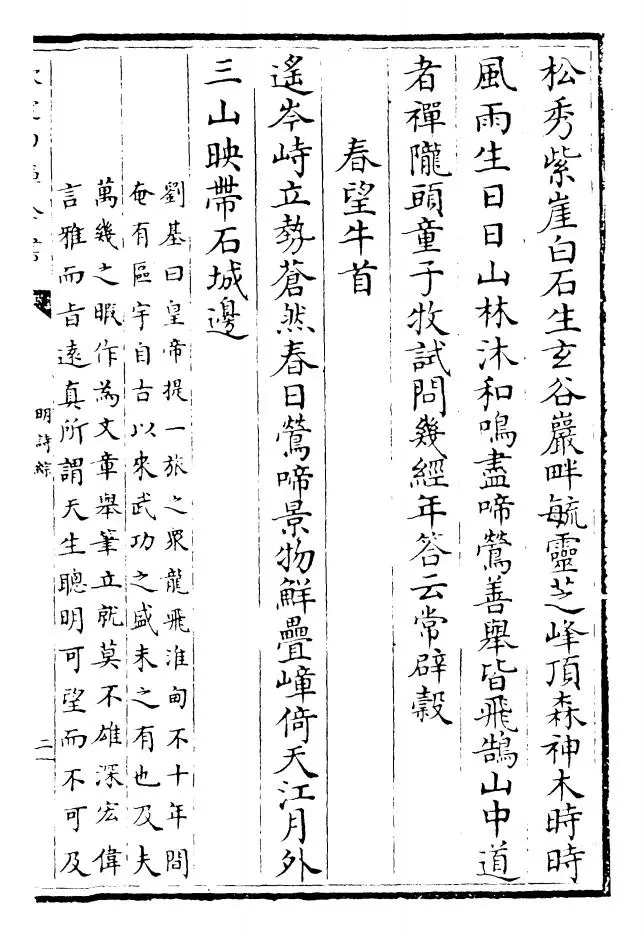 松秀紫崖白石生玄谷巖畔毓靈芝峰頂森神木時時
風雨生日日山林沐和鳴盡啼鶯善舉皆飛鵠山中道
者禪隴頭童子牧試問幾經年答云常辟穀
春望牛首
遙岑峙立勢蒼然春日鶯啼景物鮮疊嶂倚天江月外
三山映帶石城邊
劉基曰皇帝提一旅之衆龍飛淮甸不十年間
奄有區宇自古以來武功之盛未之有也及夫
萬幾之暇作為文章舉筆立就莫不雄深宏偉
言雅而旨遠真所謂天生聰明可望而不可及
明詩綜
二